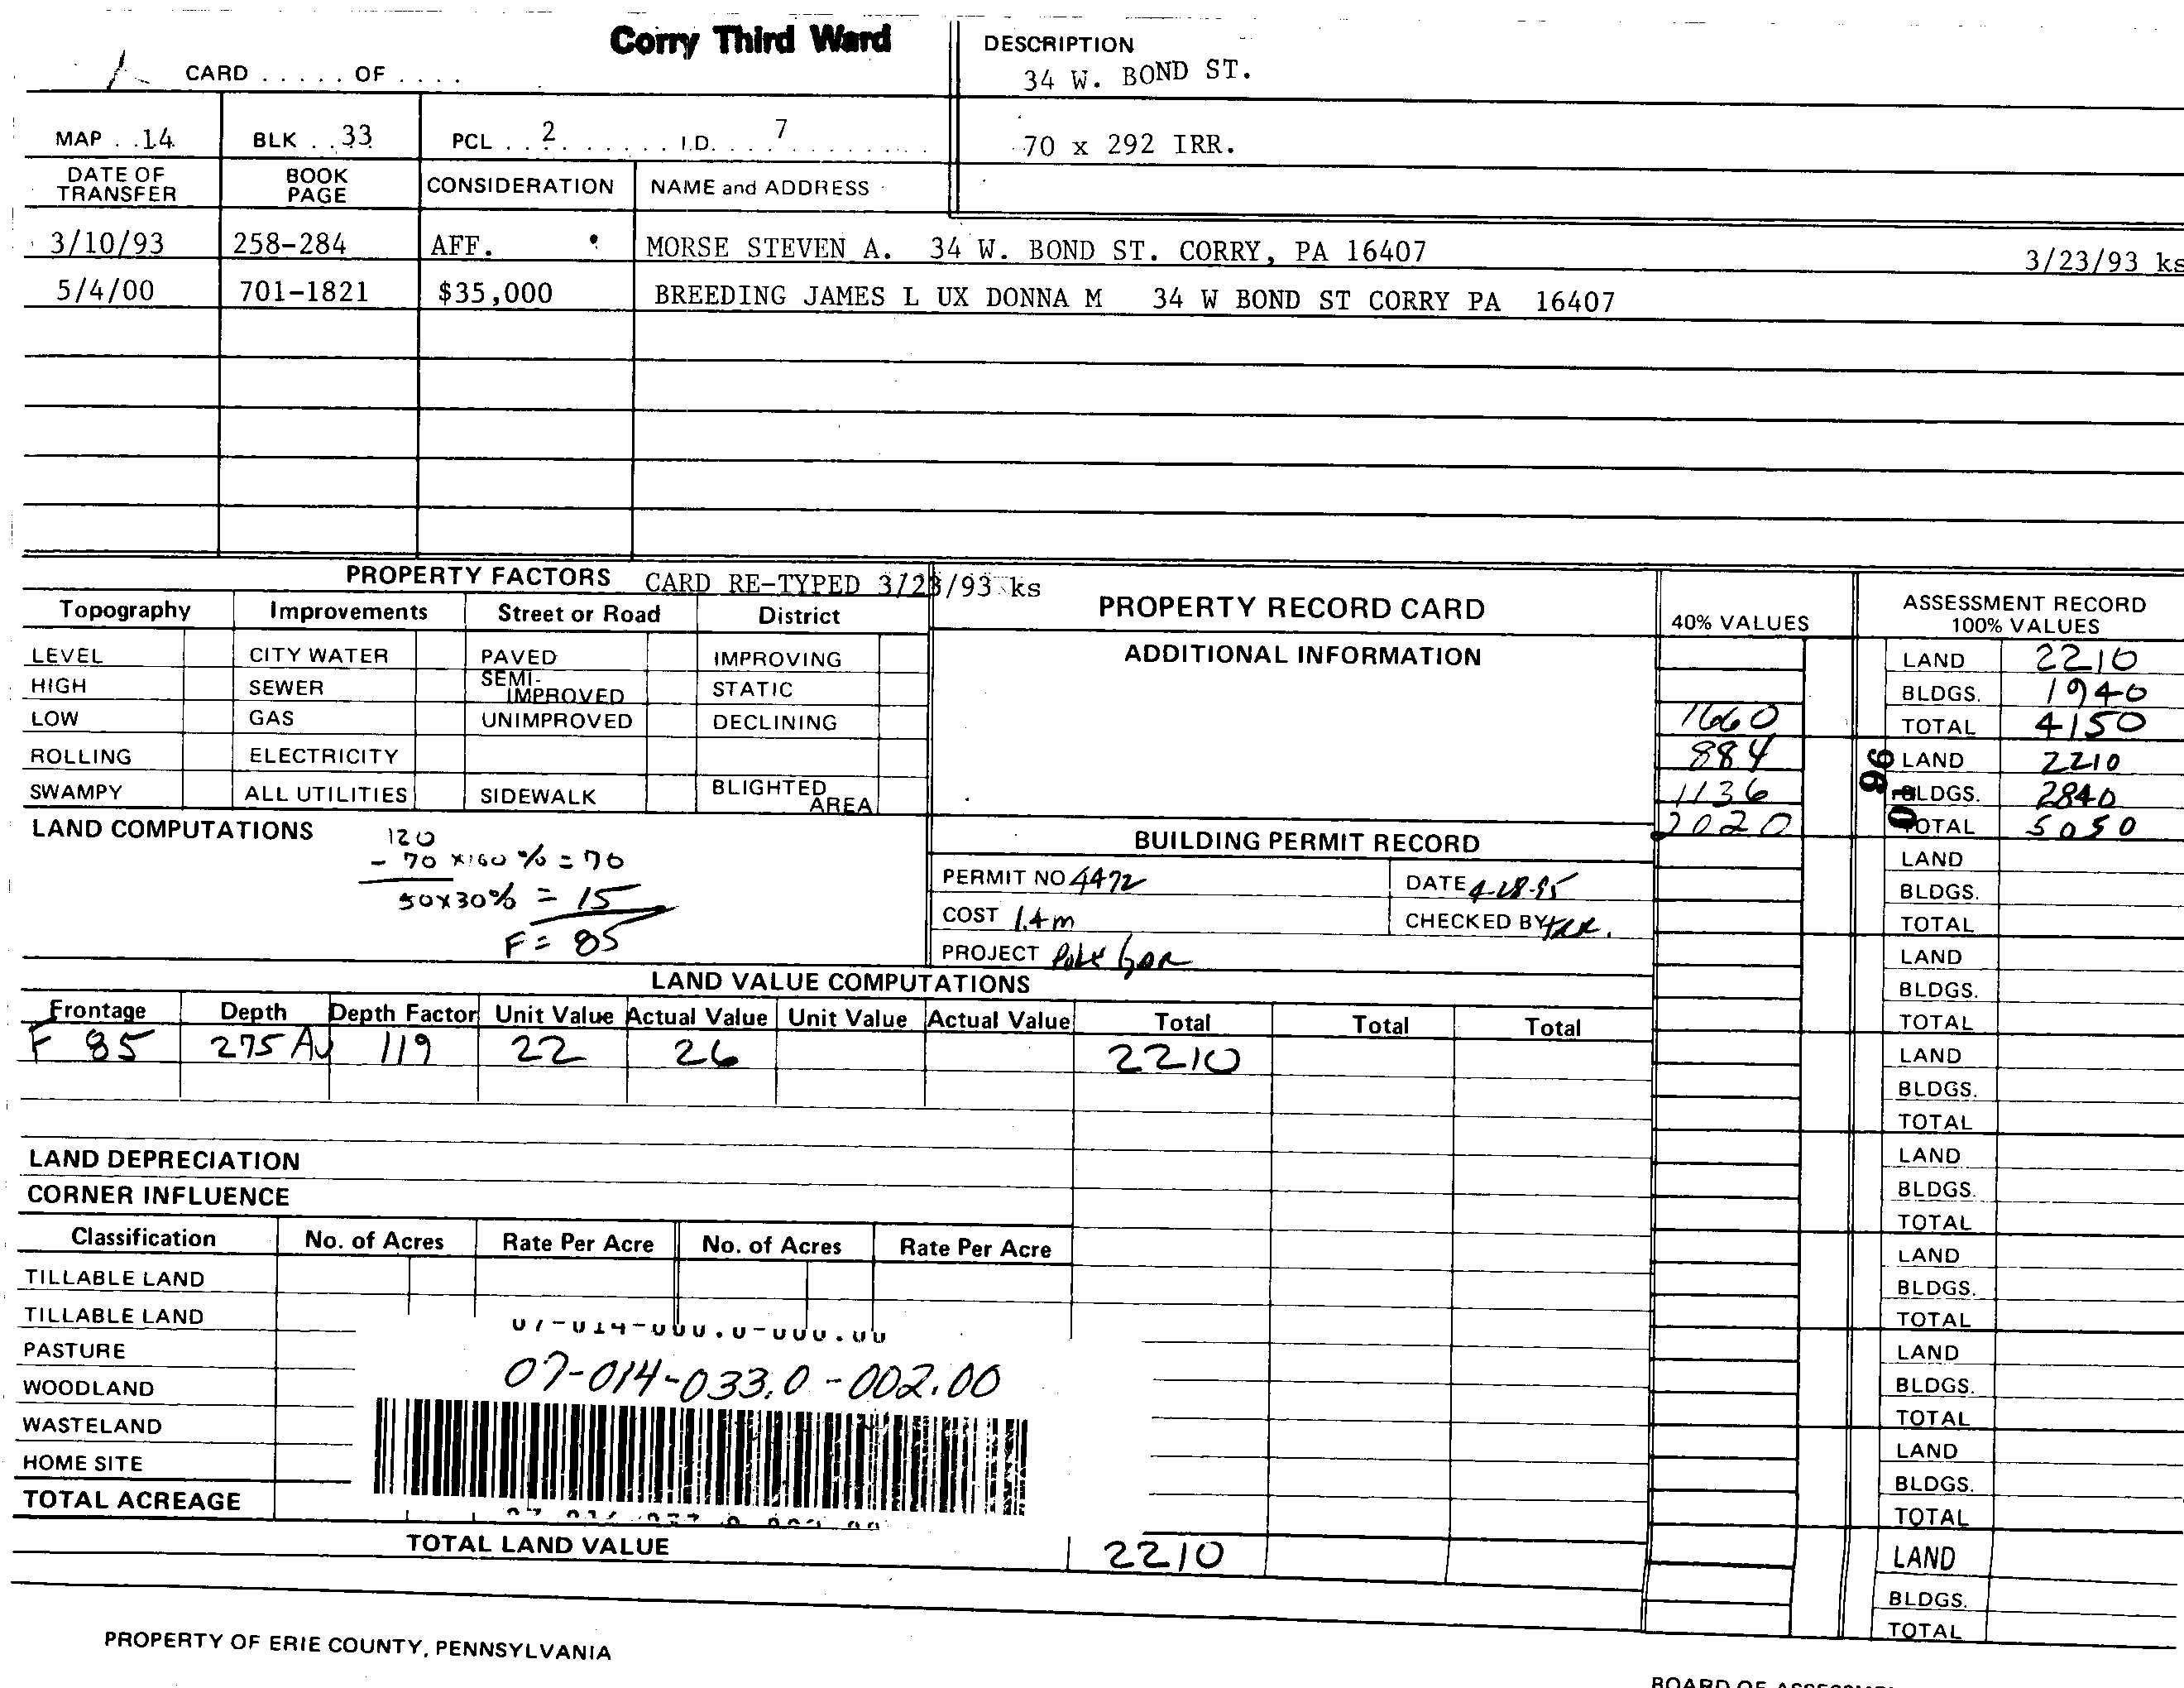 Corry Third Ward
CARD . . . . . OF . . . .
DESCRIPTION
34 W. BOND ST.
MAP . . 14 BLK . . 33 PCL . . 2 . . . . . . . I.D. . . . 7 . . . . . . . . . .
70 x 292 IRR.
DATE OF TRANSFER BOOK PAGE CONSIDERATION NAME and ADDRESS
3/10/93 258-284 AFF. MORSE STEVEN A. 34 W. BOND ST. CORRY, PA 16407 3/23/93 ks
5/4/00 701-1821 $35,000 BREEDING JAMES L UX DONNA M 34 W BOND ST CORRY PA 16407
PROPERTY FACTORS CARD RE-TYPED 3/23/93 ks
Topography Improvements Street or Road District
LEVEL CITY WATER PAVED IMPROVING
HIGH SEWER SEMI-IMPROVED STATIC
LOW GAS UNIMPROVED DECLINING
ROLLING ELECTRICITY
SWAMPY ALL UTILITIES SIDEWALK BLIGHTED AREA
PROPERTY RECORD CARD
ADDITIONAL INFORMATION
40% VALUES
1660
884
1136
2020
ASSESSMENT RECORD
100% VALUES
LAND 2210
BLDGS. 1940
TOTAL 4150
96
01
LAND 2210
BLDGS. 2840
TOTAL 5050
LAND
BLDGS.
TOTAL
LAND
BLDGS.
TOTAL
LAND
BLDGS.
TOTAL
LAND
BLDGS.
TOTAL
LAND
BLDGS.
TOTAL
LAND
BLDGS.
TOTAL
LAND
BLDGS.
TOTAL
LAND
BLDGS.
TOTAL
LAND COMPUTATIONS
120
- 70 x 100 % = 70
50 x 30% = 15
F = 85
BUILDING PERMIT RECORD
PERMIT NO 4472 DATE 4-28-95
COST 1.4 m CHECKED BY
PROJECT Pole Gar
LAND VALUE COMPUTATIONS
Frontage Depth Depth Factor Unit Value Actual Value Unit Value Actual Value Total Total Total
F 85 275 Av 119 22 26 2210
LAND DEPRECIATION
CORNER INFLUENCE
Classification No. of Acres Rate Per Acre No. of Acres Rate Per Acre
TILLABLE LAND
TILLABLE LAND
07-014-000.0-000.00
PASTURE
07-014-033.0-002.00
WOODLAND
WASTELAND
HOME SITE
TOTAL ACREAGE
TOTAL LAND VALUE 2210
PROPERTY OF ERIE COUNTY, PENNSYLVANIA
BOARD OF